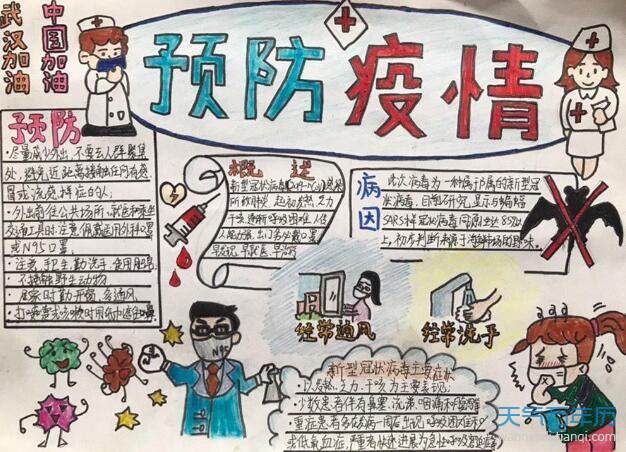 武汉加油
中国加油
预防疫情
预防
·尽量减少外出,不要去人群聚集
处,避免近距离接触任何有感
冒或流感样症的人
·外出前往公共场所,就医和乘坐
交通工具时注意佩戴医用外科口罩
或N95口罩
·注意手卫生,勤洗手,使用肥皂
·不接触野生动物
·居家时勤开窗,多通风
·打喷嚏或咳嗽时用
概述
新型冠状病毒(2019-nCoV)感染
所致肺炎,起初发热、乏力
干咳,逐渐呼吸困难,
早发现,早就医,早治疗
病因
此次病毒为一种属于β属的新型冠
状病毒,目前研究,显示与蝙蝠
SARS样冠状病毒同源性达85%以
上,初步判断来源于海鲜市场的野味。
经常通风
经常洗手
N95
新型冠状病毒主要症状
·以发热、乏力、干咳为主要表现;
·少数患者伴有鼻塞、流涕、咽痛和
·重症患者多在发病一周后出现呼吸困难和/
或低氧血症,严重者快速进展为急性呼吸窘迫
天气万年历